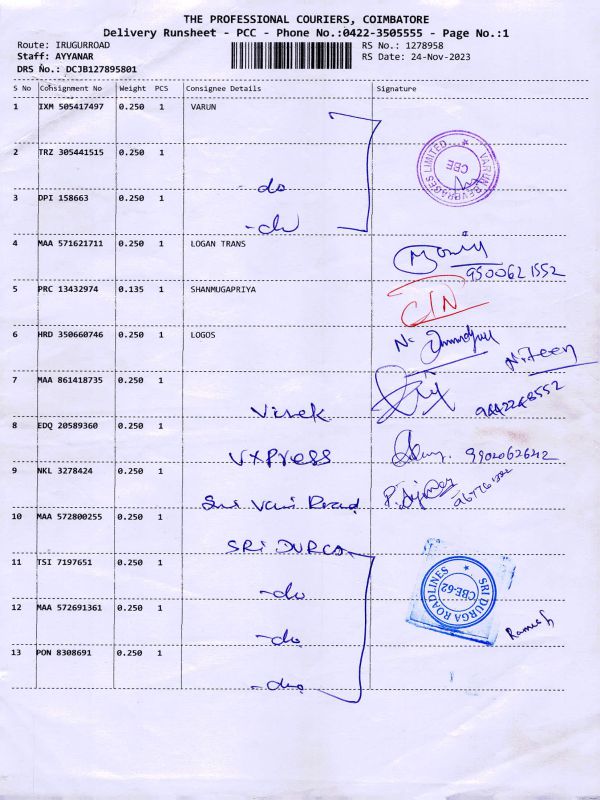 THE PROFESSIONAL COURIERS, COIMBATORE
Delivery Runsheet - PCC - Phone No.:0422-3505555 - Page No.:1
Route: IRUGURROAD RS No.: 1278958
Staff: AYYANAR RS Date: 24-Nov-2023
DRS No.: DCJB127895801
S No Consignment No Weight PCS Consignee Details Signature
1 IXM 505417497 0.250 1 VARUN
VARUN BEVERAGES LIMITED * CBE
2 TRZ 305441515 0.250 1
- do
3 DPI 158663 0.250 1
- do
4 MAA 571621711 0.250 1 LOGAN TRANS
9500621552
5 PRC 13432974 0.135 1 SHANMUGAPRIYA
6 HRD 350660746 0.250 1 LOGOS
Niteen
7 MAA 861418735 0.250 1
Vivek
8 EDQ 20589360 0.250 1
VXPRESS 9902062642
9 NKL 3278424 0.250 1
Sri Vari Road
10 MAA 572800255 0.250 1
SRI DURGA
11 TSI 7197651 0.250 1
- do
SRI DURGA ROADLINES * CBE-62
12 MAA 572691361 0.250 1
- do
Ramesh
13 PON 8308691 0.250 1
- do